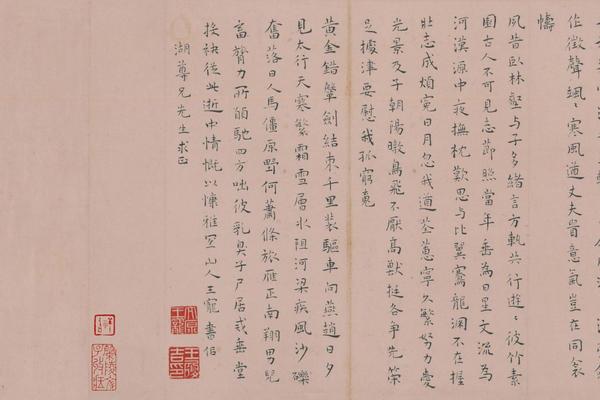 作徵聲颯〻寒風遒丈夫畧意氣豈在同衾
幬
夙昔臥林壑与子多緒言方執共行遊〻彼竹素
園古人不可見志節照當年垂為日星文流為
河漢源中夜撫枕歎思与比翼騫龍淵不在握
壯志成煩寃日月忽我遒荃蕙寧久繁努力愛
光景及子朝陽暾鳥飛不厭高獸挺各爭先策
足據津要慰我孤窮
黃金錯鞶劍結束千里裝驅車向燕趙日夕
見太行天寒繁霜雪層氷阻河梁疾風沙礫
奮落日人馬僵原野何蕭條旅雁正南翔男兒
富膂力所願馳四方咄彼乳臭子尸居戒垂堂
接袂從此逝中情慨以慷雅宜山人王寵書佀
湖尊兄先生求正
王履吉印